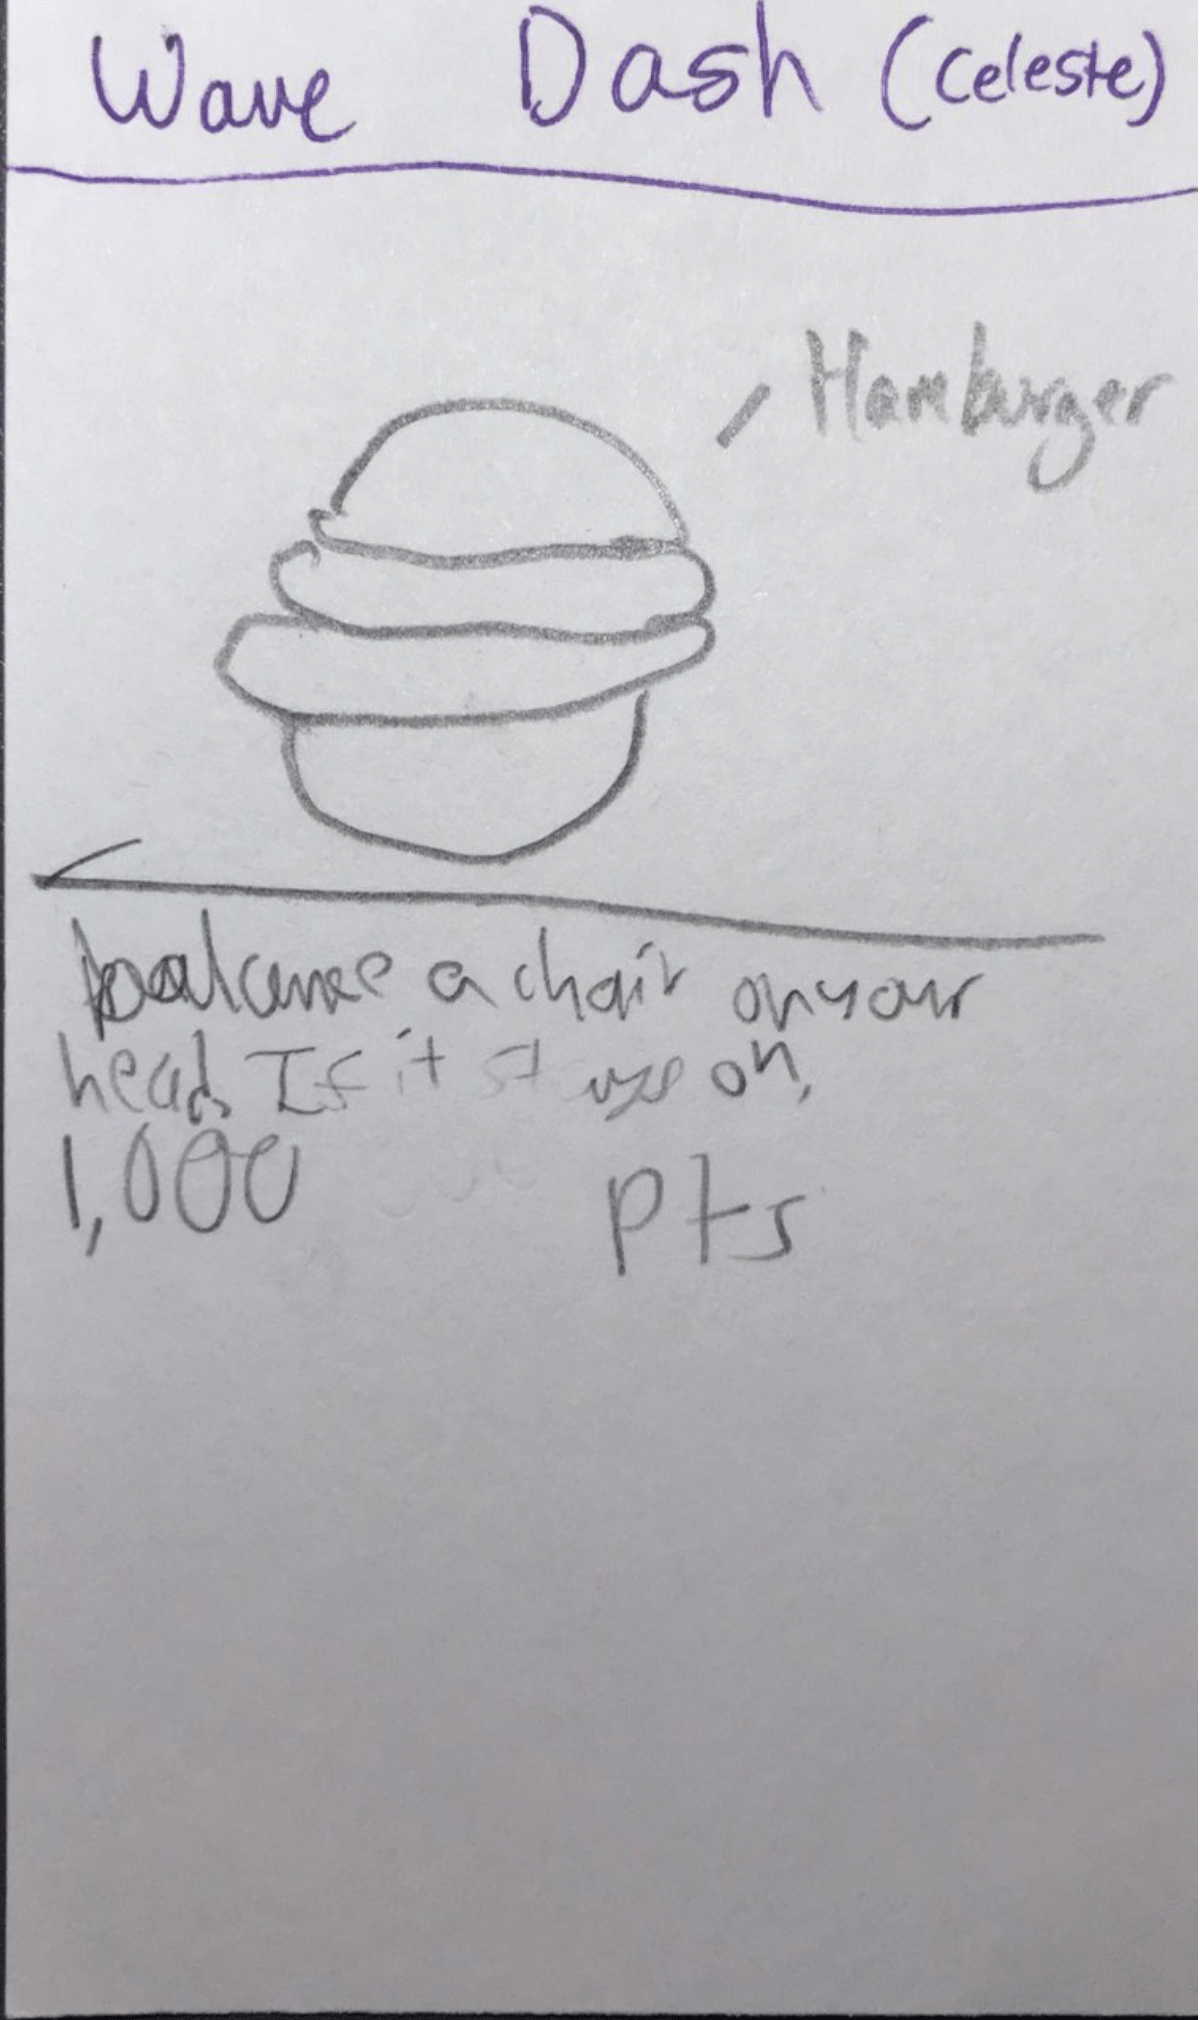 Wave Dash (Celeste)
Hamburger
balance a chair on your
head. If it on,
1,000 pts